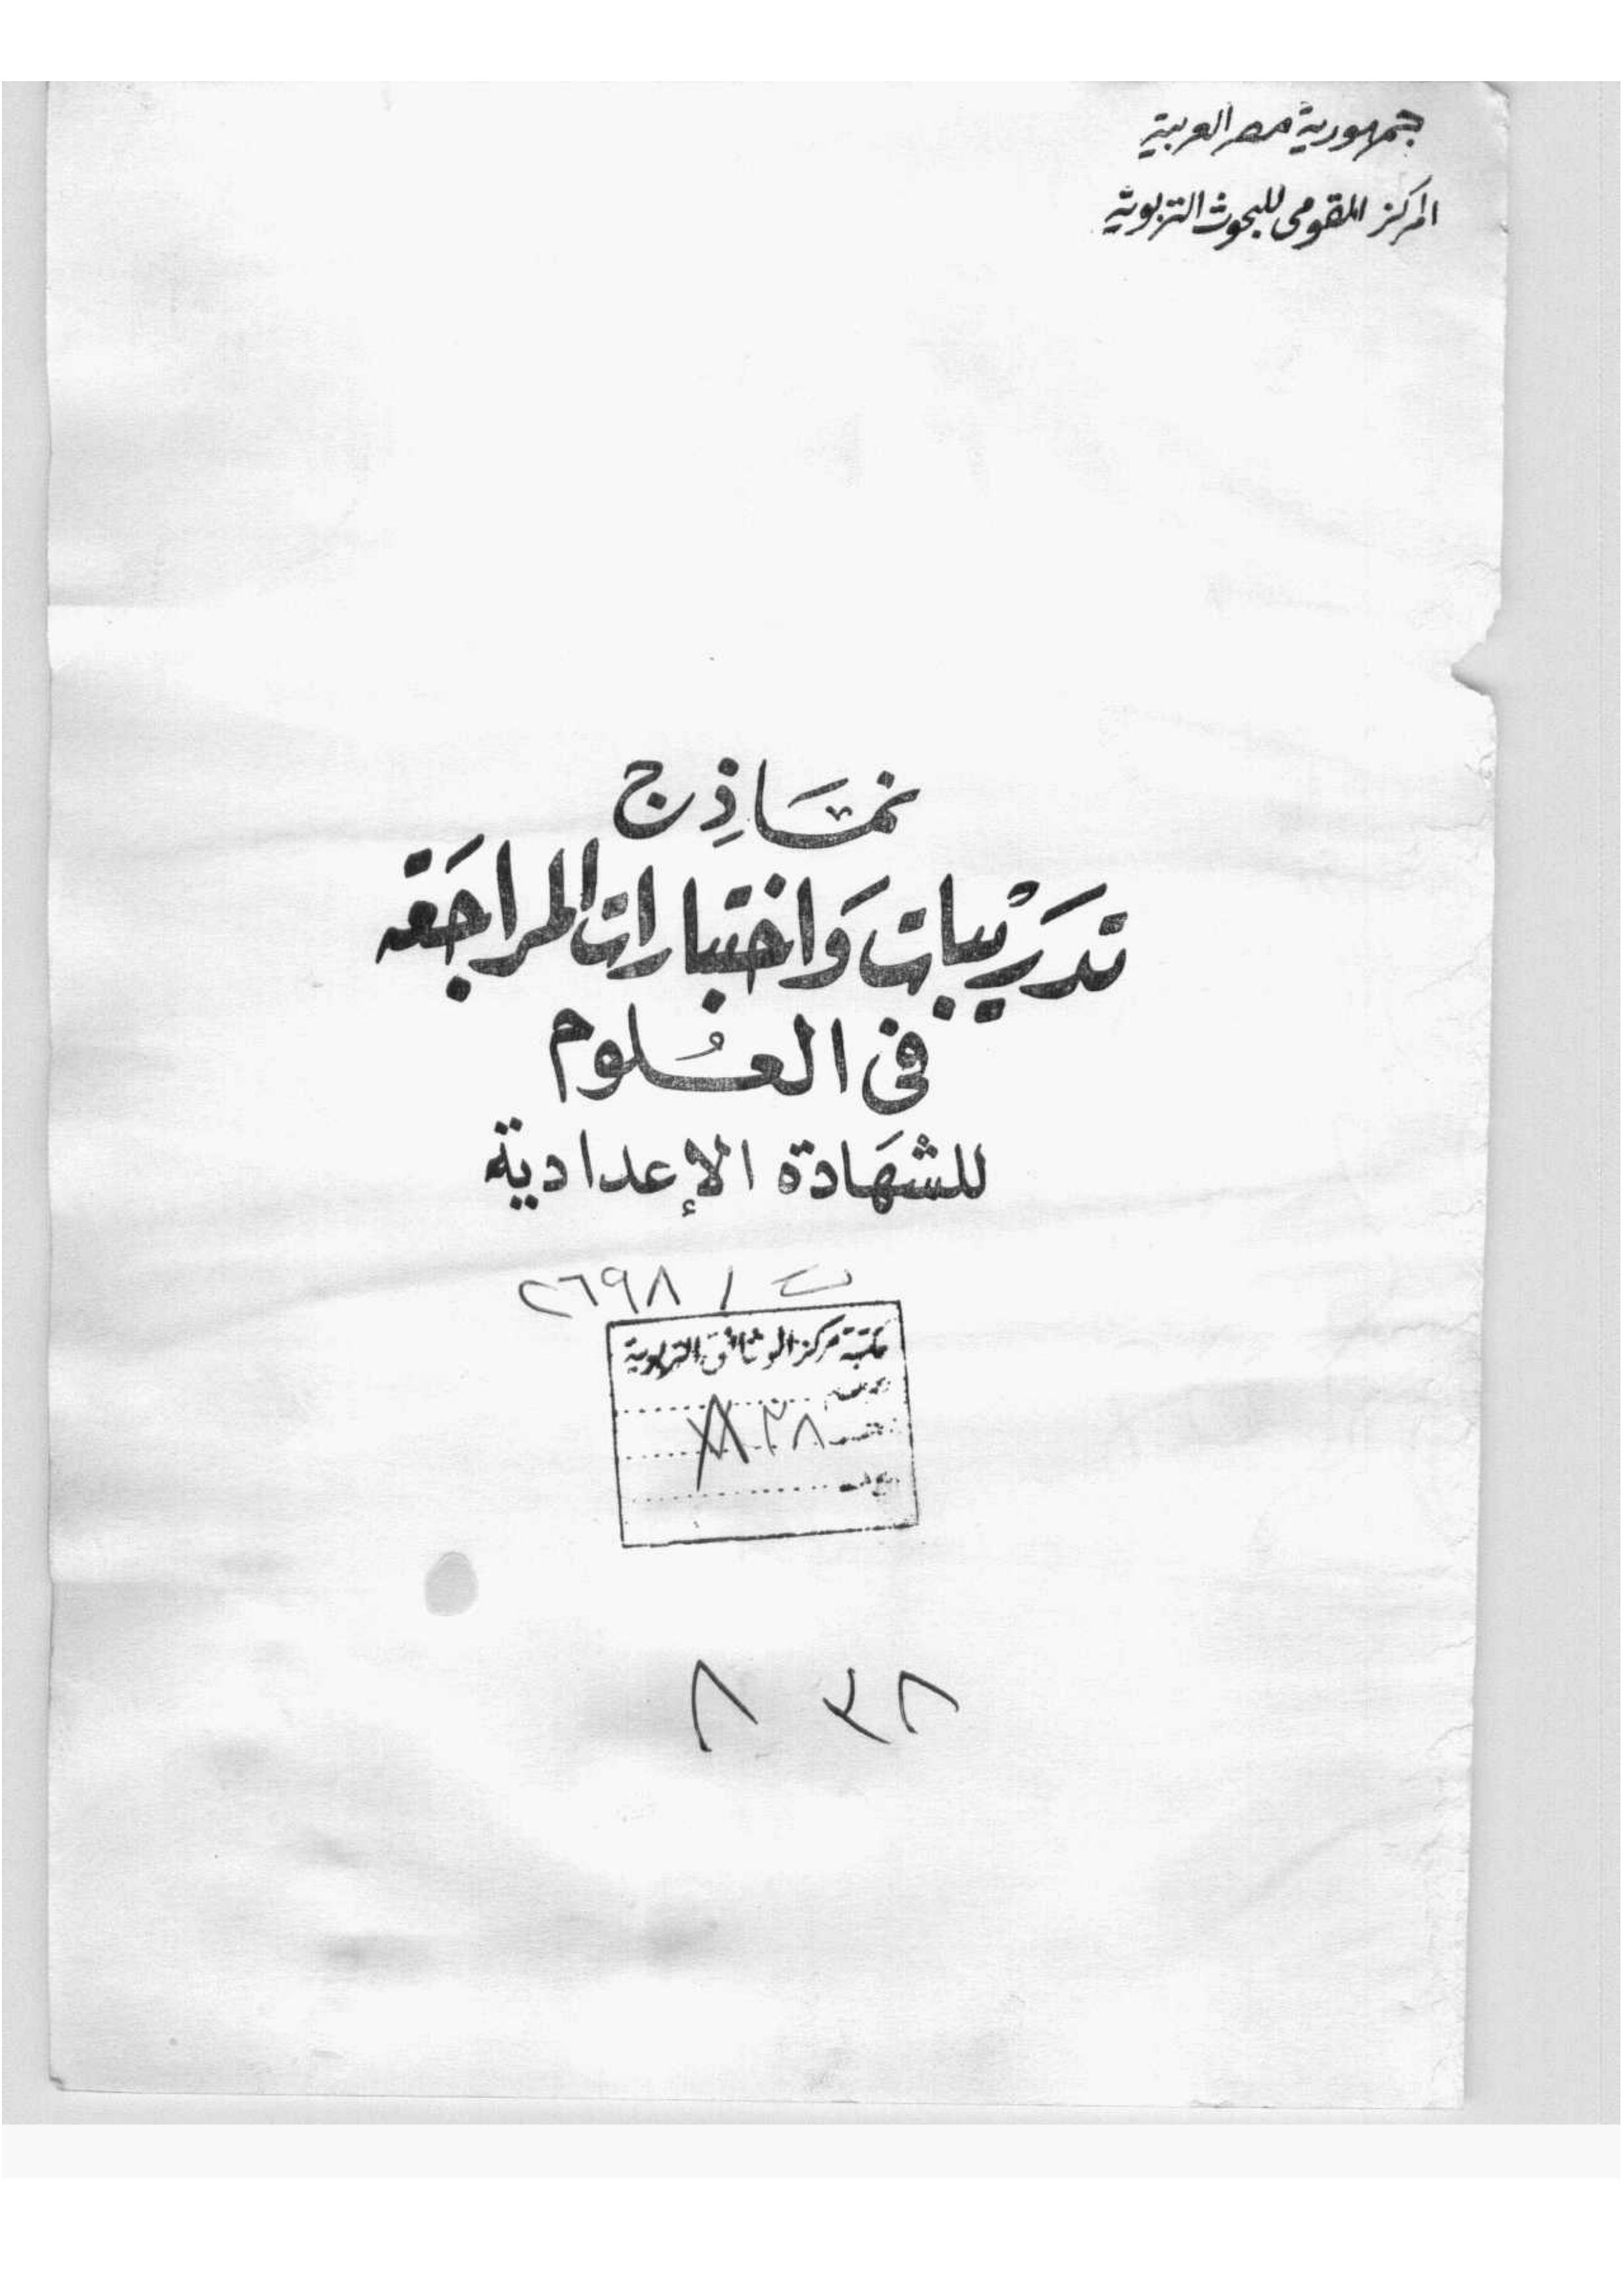 جمهورية مصر العربية
المركز القومى للبحوث التربوية
نمَاذِج
تدَرْيبات وَاختبارات المراجَعه
فى العُلوم
للشهَادة الإعدادية
٢٦٩٨ / ت
مكتبة مركز الوثائق التربوية
٢٨
٨ ٢٨